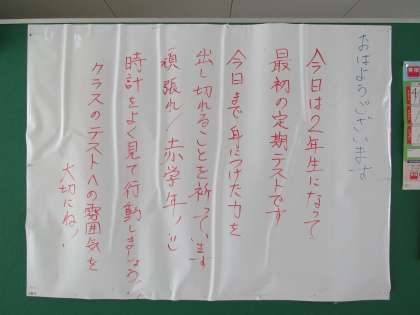 おはようございます
今日は2年生になって
最初の定期テストです
今日まで身につけた力を
出し切れることを祈っています
頑張れ!赤学年!!
時計をよく見て行動しましょう。
クラスのテストへの雰囲気を
大切にね!!